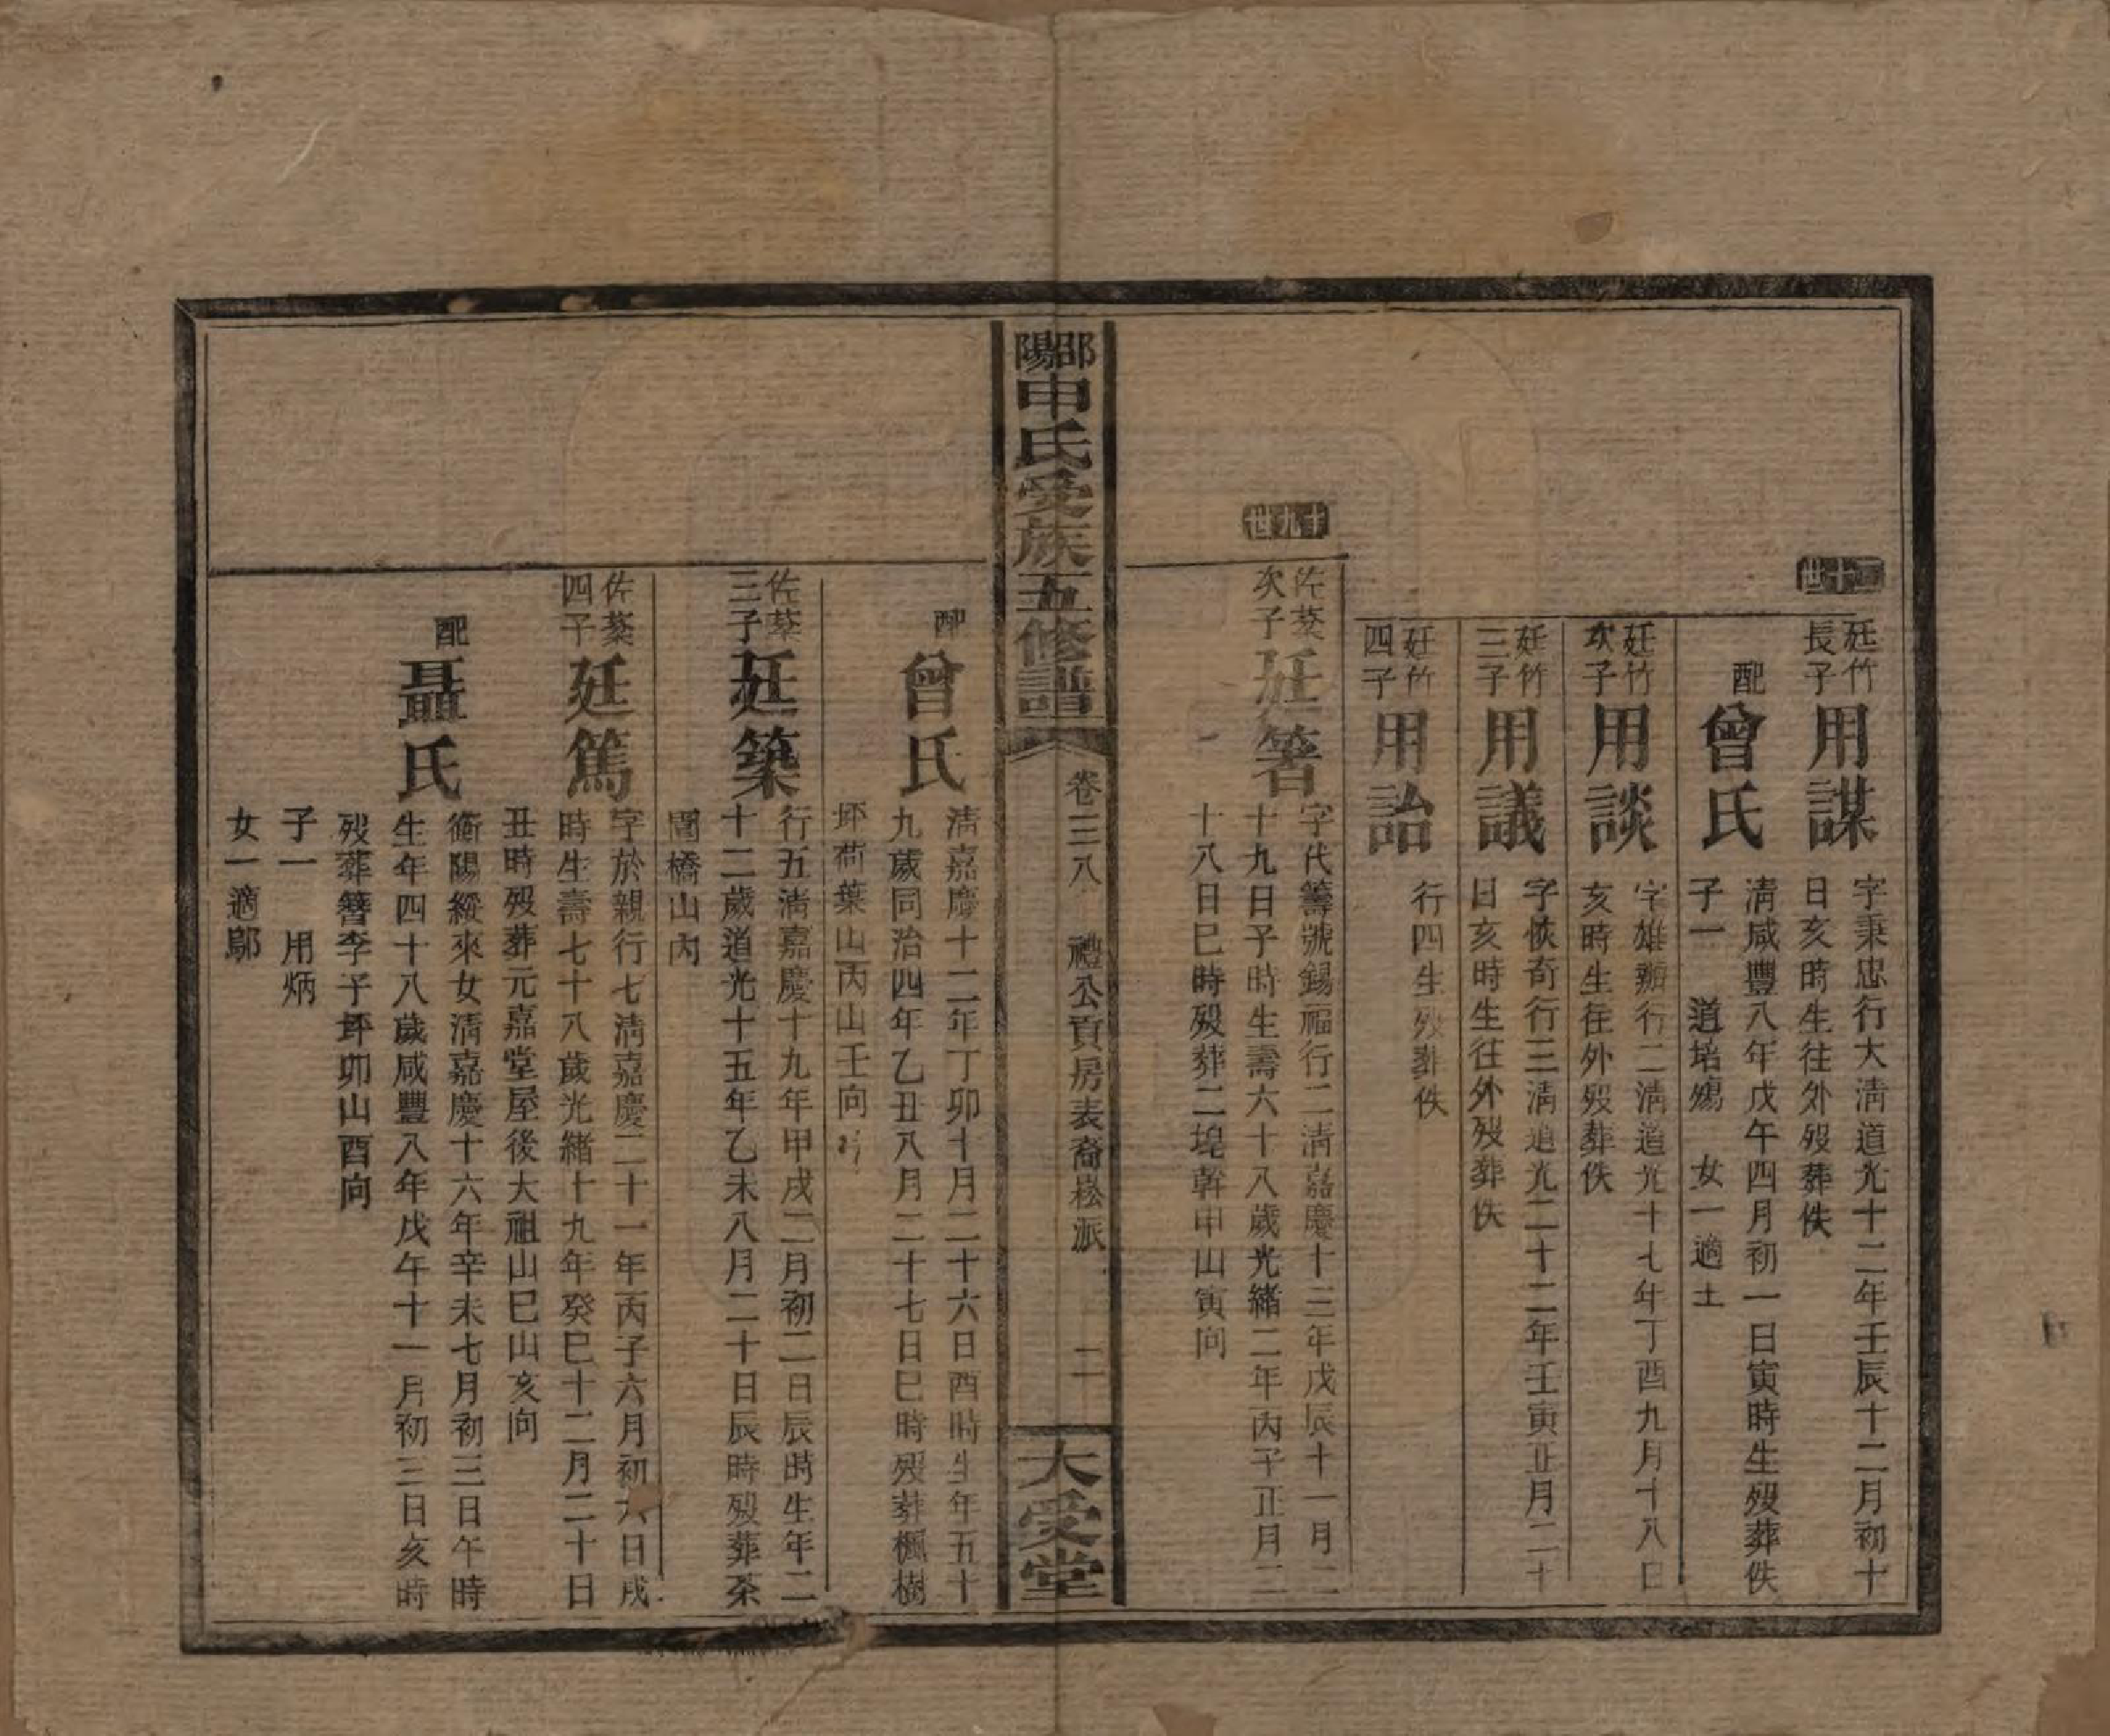 二十世
廷竹長子
用謀
字秉忠行大清道光十二年壬辰十二月初十
日亥時生往外歿葬佚
配
曾氏
清咸豐八年戊午四月初一日寅時生歿葬佚
子一 道培殤 女一適土
廷竹次子
用談
字雄辯行二清道光十七年丁酉九月十八日
亥時生往外歿葬佚
廷竹三子
用議
字恢奇行三清道光二十二年壬寅正月二十
日亥時生往外歿葬佚
廷竹四子
用詒
行四生歿葬佚
十九世
佐棻次子
廷箸
字代籌號錫福行二清嘉慶十三年戊辰十一月二
十九日子時生壽六十八歲光緒二年丙子正月二
十八日巳時歿葬二堭幹甲山寅向
邵陽申氏受族五修譜
卷三八 禮公貢房表裔崧派
二
大受堂
配
曾氏
清嘉慶十二年丁卯十月二十六日酉時生年五十
九歲同治四年乙丑八月二十七日巳時歿葬楓樹
坪荷葉山丙山壬向
佐棻三子
廷築
行五清嘉慶十九年甲戌二月初二日辰時生年二
十二歲道光十五年乙未八月二十日辰時歿葬茶
園橋山內
佐棻四子
廷篤
字於親行七清嘉慶二十一年丙子六月初六日戌
時生壽七十八歲光緒十九年癸巳十二月二十日
丑時歿葬元嘉堂屋後大祖山巳山亥向
配
聶氏
衡陽縱來女清嘉慶十六年辛未七月初三日午時
生年四十八歲咸豐八年戊午十一月初三日亥時
歿葬簪李子坪卯山酉向
子一 用炳
女一適鄔